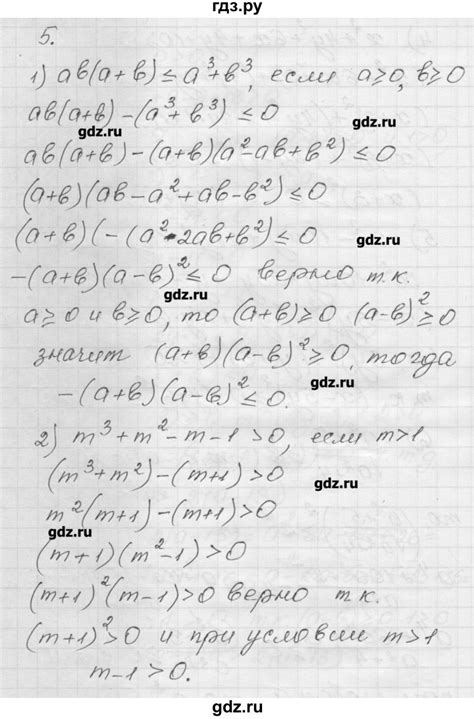 гдз.ру
5.
1) ab(a+b) ≤ a³+b³, если a≥0, b≥0
ab(a+b) - (a³+b³) ≤ 0
gdz.ru
ab(a+b) - (a+b)(a²-ab+b²) ≤ 0
gdz.ru
(a+b)(ab-a²+ab-b²) ≤ 0
(a+b)(-(a²-2ab+b²) ≤ 0
gdz.ru
-(a+b)(a-b)² ≤ 0 верно т.к.
gdz.ru
a≥0 и b≥0, то (a+b)≥0 (a-b)²≥0
значит (a+b)(a-b)²≥0, тогда
gdz.ru
-(a+b)(a-b)² ≤ 0.
2) m³+m²-m-1>0, если m>1
(m³+m²)-(m+1)>0
gdz.ru
m²(m+1)-(m+1)>0
gdz.ru
(m+1)(m²-1)>0
gdz.ru
(m+1)²(m-1)>0 верно т.к.
(m+1)²>0 и при условии m>1
gdz.ru
m-1>0.
gdz.ru